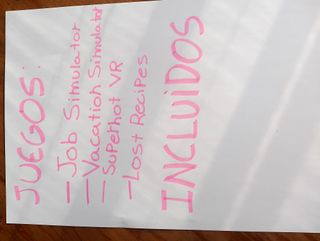 JUEGOS:
— Job Simulator
— Vacation Simulator
— Superhot VR
— Lost Recipes
INCLUIDOS